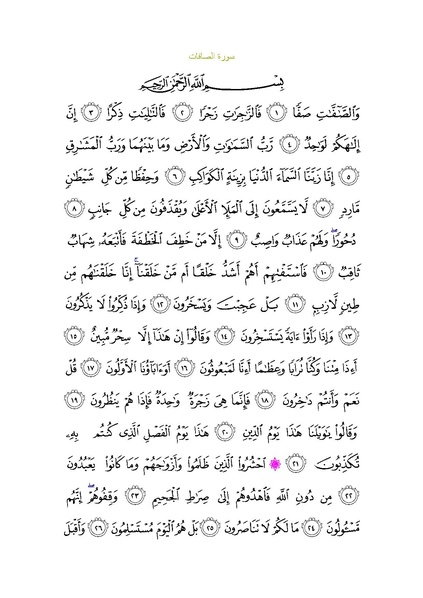 سورة الصافات
بِسْمِ اللَّهِ الرَّحْمَٰنِ الرَّحِيمِ
وَالصَّافَّاتِ صَفًّا ﴿١﴾ فَالزَّاجِرَاتِ زَجْرًا ﴿٢﴾ فَالتَّالِيَاتِ ذِكْرًا ﴿٣﴾ إِنَّ
إِلَٰهَكُمْ لَوَاحِدٌ ﴿٤﴾ رَّبُّ السَّمَاوَاتِ وَالْأَرْضِ وَمَا بَيْنَهُمَا وَرَبُّ الْمَشَارِقِ
﴿٥﴾ إِنَّا زَيَّنَّا السَّمَاءَ الدُّنْيَا بِزِينَةٍ الْكَوَاكِبِ ﴿٦﴾ وَحِفْظًا مِّن كُلِّ شَيْطَانٍ
مَّارِدٍ ﴿٧﴾ لَّا يَسَّمَّعُونَ إِلَى الْمَلَإِ الْأَعْلَىٰ وَيُقْذَفُونَ مِن كُلِّ جَانِبٍ ﴿٨﴾
دُحُورًا ۖ وَلَهُمْ عَذَابٌ وَاصِبٌ ﴿٩﴾ إِلَّا مَنْ خَطِفَ الْخَطْفَةَ فَأَتْبَعَهُ شِهَابٌ
ثَاقِبٌ ﴿١٠﴾ فَاسْتَفْتِهِمْ أَهُمْ أَشَدُّ خَلْقًا أَم مَّنْ خَلَقْنَا ۚ إِنَّا خَلَقْنَاهُم مِّن
طِينٍ لَّازِبٍ ﴿١١﴾ بَلْ عَجِبْتَ وَيَسْخَرُونَ ﴿١٢﴾ وَإِذَا ذُكِّرُوا لَا يَذْكُرُونَ
﴿١٣﴾ وَإِذَا رَأَوْا آيَةً يَسْتَسْخِرُونَ ﴿١٤﴾ وَقَالُوا إِنْ هَٰذَا إِلَّا سِحْرٌ مُّبِينٌ ﴿١٥﴾
أَإِذَا مِتْنَا وَكُنَّا تُرَابًا وَعِظَامًا أَإِنَّا لَمَبْعُوثُونَ ﴿١٦﴾ أَوَآبَاؤُنَا الْأَوَّلُونَ ﴿١٧﴾ قُلْ
نَعَمْ وَأَنتُمْ دَاخِرُونَ ﴿١٨﴾ فَإِنَّمَا هِيَ زَجْرَةٌ وَاحِدَةٌ فَإِذَا هُمْ يَنظُرُونَ ﴿١٩﴾
وَقَالُوا يَا وَيْلَنَا هَٰذَا يَوْمُ الدِّينِ ﴿٢٠﴾ هَٰذَا يَوْمُ الْفَصْلِ الَّذِي كُنتُم بِهِ
تُكَذِّبُونَ ﴿٢١﴾ ۞ احْشُرُوا الَّذِينَ ظَلَمُوا وَأَزْوَاجَهُمْ وَمَا كَانُوا يَعْبُدُونَ
﴿٢٢﴾ مِن دُونِ اللَّهِ فَاهْدُوهُمْ إِلَىٰ صِرَاطِ الْجَحِيمِ ﴿٢٣﴾ وَقِفُوهُمْ ۖ إِنَّهُم
مَّسْئُولُونَ ﴿٢٤﴾ مَا لَكُمْ لَا تَنَاصَرُونَ ﴿٢٥﴾ بَلْ هُمُ الْيَوْمَ مُسْتَسْلِمُونَ ﴿٢٦﴾ وَأَقْبَلَ